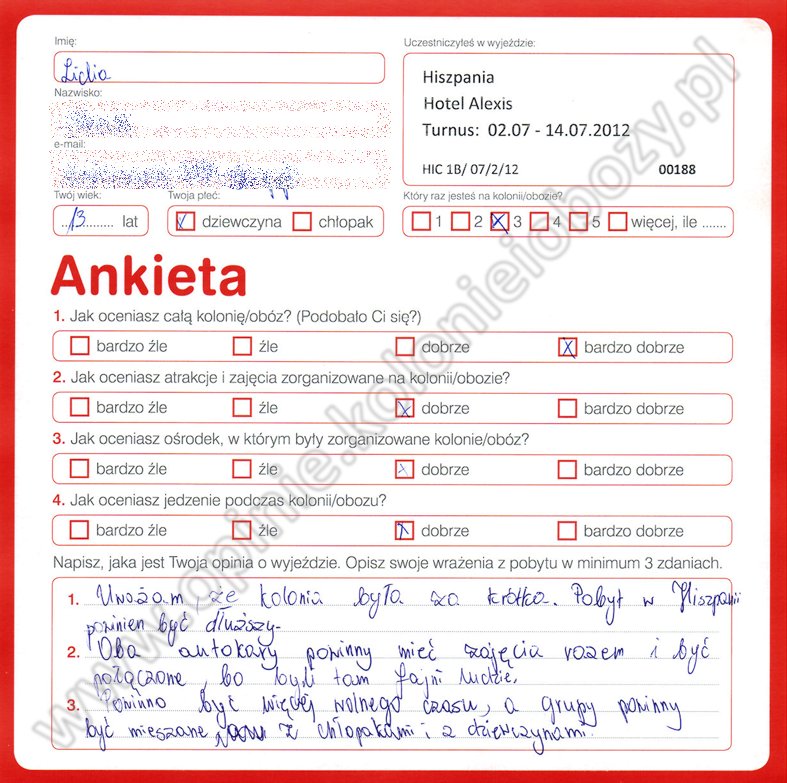 Imię:
Lidia
Nazwisko:
e-mail:
Twój wiek:
..13........ lat
Twoja płeć:
dziewczyna chłopak
Uczestniczyłeś w wyjeździe:
Hiszpania
Hotel Alexis
Turnus: 02.07 - 14.07.2012
HIC 1B/ 07/2/12 00188
Który raz jesteś na kolonii/obozie?
1 2 3 4 5 więcej, ile .......
Ankieta
1. Jak oceniasz całą kolonię/obóz? (Podobało Ci się?)
bardzo źle źle dobrze bardzo dobrze
2. Jak oceniasz atrakcje i zajęcia zorganizowane na kolonii/obozie?
bardzo źle źle dobrze bardzo dobrze
3. Jak oceniasz ośrodek, w którym były zorganizowane kolonie/obóz?
bardzo źle źle dobrze bardzo dobrze
4. Jak oceniasz jedzenie podczas kolonii/obozu?
bardzo źle źle dobrze bardzo dobrze
Napisz, jaka jest Twoja opinia o wyjeździe. Opisz swoje wrażenia z pobytu w minimum 3 zdaniach.
1. Uważam, że kolonia była za krótka. Pobyt w Hiszpanii
powinien być dłuższy.
2. Oba autokary powinny mieć zajęcia razem i być
połączone, bo byli tam fajni ludzie.
3. Powinno być więcej wolnego czasu, a grupy powinny
być mieszane z chłopakami i z dziewczynami.
www.opinie.kolonieiobozy.pl